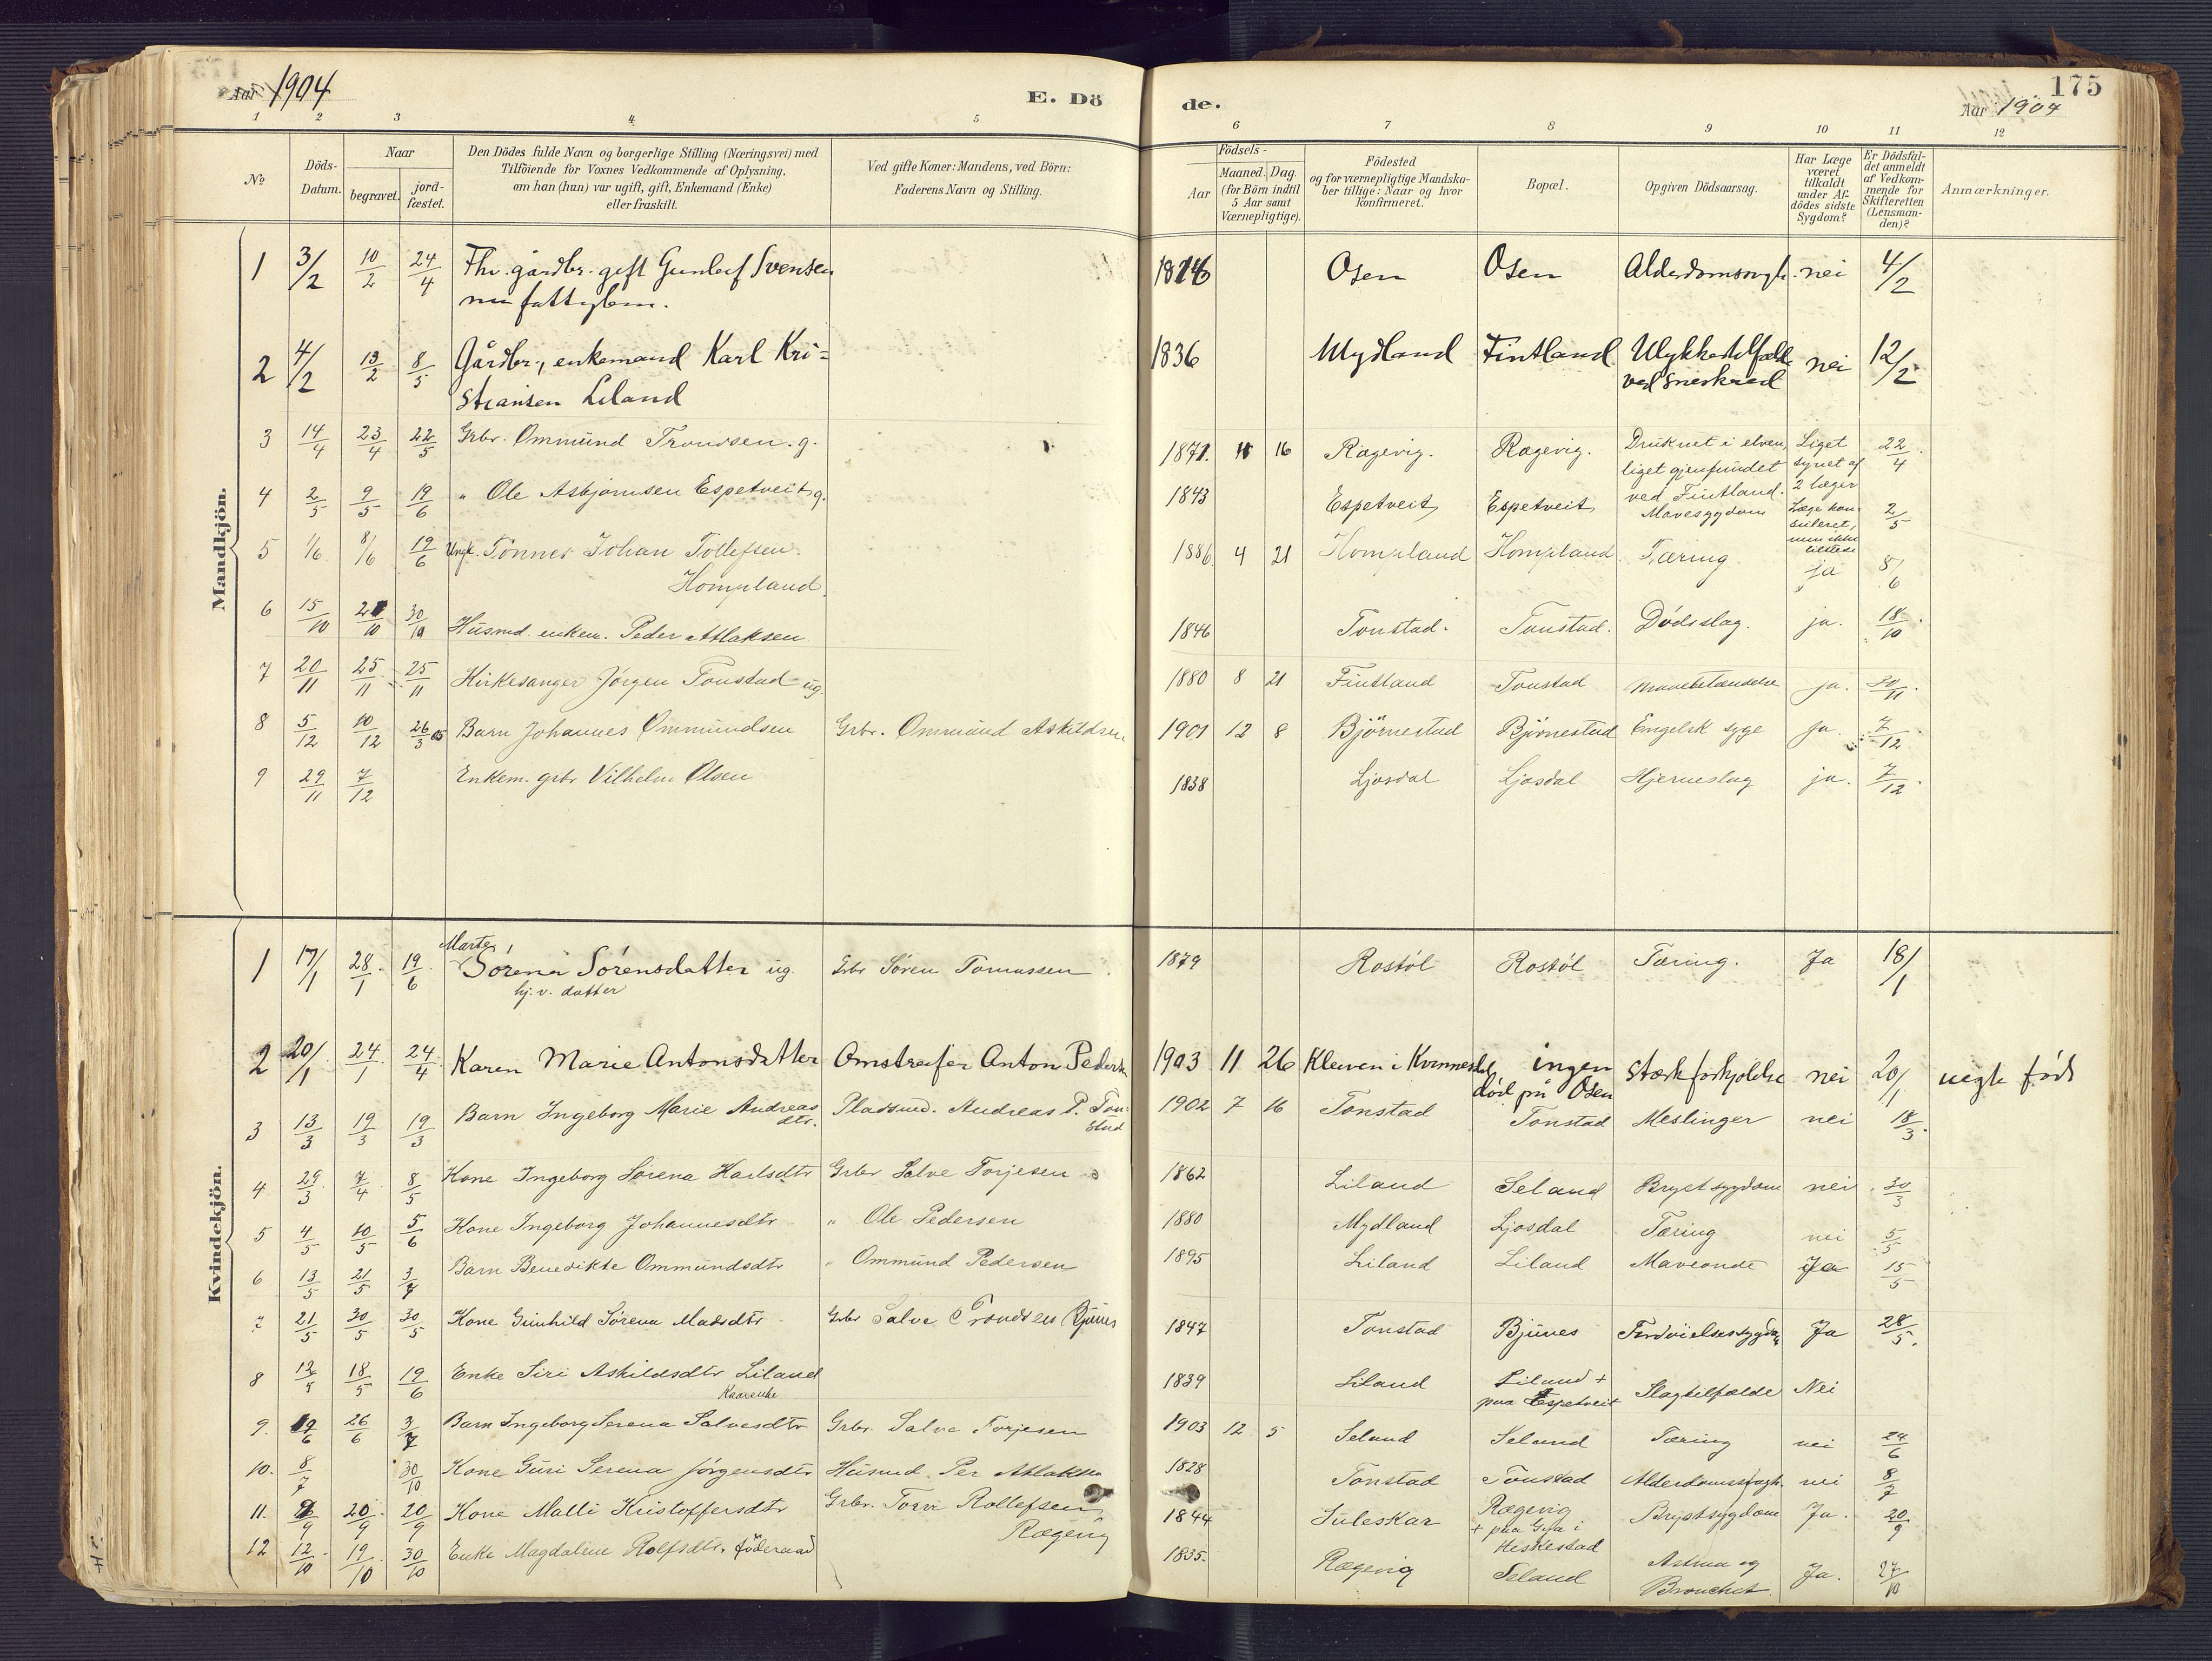 Aar 1904
E. Dö
de.
175
Aar 1904
1 2 3 4 5 6 7 8 9 10 11 12
No
Döds-Datum.
Naar
begravet.
jord-fæstet.
Den Dödes fulde Navn og borgerlige Stilling (Næringsvei) med
Tilföiende for Voxnes Vedkommende af Oplysning,
om han (hun) var ugift, gift, Enkemand (Enke)
eller fraskilt.
Ved gifte Koner: Mandens, ved Börn:
Faderens Navn og Stilling.
Födsels-
Aar
Maaned. Dag.
(for Börn indtil
5 Aar samt
Værnepligtige).
Födested
og for værnepligtige Mandska-
ber tillige: Naar og hvor
konfirmeret.
Bopæl.
Opgiven Dödsaarsag.
Har Læge
været
tilkaldt
under Af-
dödes sidste
Sygdom?
Er Dödsfal-
det anmeldt
af Vedkom-
mende for
Skifteretten
(Lensman-
den)?
Anmærkninger.
Mandkjön.
1 3/2 10/2 24/4 Fhv. gårdbr. gift Gunleif Svensen Osen Osen nei 4/2
2 4/2 13/2 8/5 Gårdbr., enkemand Karl Kri= 1836 Mydland Fintland Ulykkestilfælde nei 12/2
stiansen Liland ved sneskred
3 14/4 23/4 22/5 Grbr. Ommund Trondsen. g. 1871. 16 Rægevig. Rægevig. Druknet i elven, Liget 22/4
liget gjenfundet synet af
ved Fintland. 2 læger
4 2/5 9/5 19/6 " Ole Asbjørnsen Espetveit g. 1843 Espetveit Espetveit Mavesygdom Læge kon-
suleret, 2/5
men ikke
5 1/6 8/6 19/6 Ungk. Tønnes Johan Tollefsen. 1886 4 21 Hompland Hompland Tæring ja 8/6
Hompland.
6 15/10 30/10 Husmd. enkem. Peder Atlaksen 1846 Tonstad. Tonstad. Dødsslag. ja. 18/10
7 20/11 25/11 25/11 Kirkesanger Jørgen Tonstad ug. 1880 8 21 Fintland Tonstad Mavebetændelse ja.
8 5/12 10/12 26/3 05 Barn Johannes Ommundsen Grbr. Ommund Askildsen 1901 12 8 Bjørnestad Bjørnestad Engelsk syge ja. 7/12
9 29/11 7/12 Enkem. grbr Vilhelm Olsen 1838 Ljosdal Ljosdal Hjerneslag ja. 7/12
Kvindekjön.
Marte
1 17/1 28/1 19/6 Sørena Sørensdatter ug. Grbr Søren Tomassen 1879 Rostøl Rostøl Tæring. Ja 18/1
hj. v. datter
2 20/1 24/1 24/4 Karen Marie Antonsdatter Omstreifer Anton Pedersen 1903 11 26 Kleven i Kvinnesdal ingen stærk forkjølelse nei 20/1 uegte født
død på Osen
3 13/3 19/3 19/3 Barn Ingeborg Marie Andreas dtr. Pladsmd. Andreas P. Ton-stad 1902 7 16 Tonstad Tonstad Meslinger nei 18/3
4 29/3 7/4 8/5 Kone Ingeborg Sørena Karlsdtr Grbr Salve Torjesen 1862 Liland Seland Brystsygdom nei 30/3
5 4/5 10/5 5/6 Kone Ingeborg Johannesdtr " Ole Pedersen 1880 Mydland Ljosdal Tæring nei 5/5
6 13/5 21/5 Barn Benedikte Ommundsdtr " Ommund Pedersen 1895 Liland Liland Maveonde Ja 15/5
7 21/5 30/5 30/5 Kone Gunhild Sørena Madsdtr Grbr Salve Trondsen Bjunes 1847 Tonstad Bjunes Fordøielsessygdom Ja 28/5
8 18/5 19/6 Enke Siri Askildsdtr Liland 1839 Liland Liland + Slagtilfælde Nei
Kaarenke paa Espetveit
9. 26/6 Barn Ingeborg Serena Salvesdtr Grbr. Salve Torjesen 1903 12 5 Seland Seland Tæring nei 24/6
10. 8/7 30/10 Kone Guri Serena Jørgensdtr Husmd. Per Atlaksen 1828 Tonstad Tonstad Alderdomssvagh. nei 8/7
11. 20/9 20/9 Kone Malli Kristoffersdtr Grbr. Rollefsen 1844 Suleskar Rægevig Brystsygdom Ja. 20/9
Rægevig + paa i
Heskestad
12 12/10 19/10 30/10 Enke Magdalene Rolfsdtr. føderaad 1835. Rægevig Seland Astma og Ja. 27/10
Bronchit